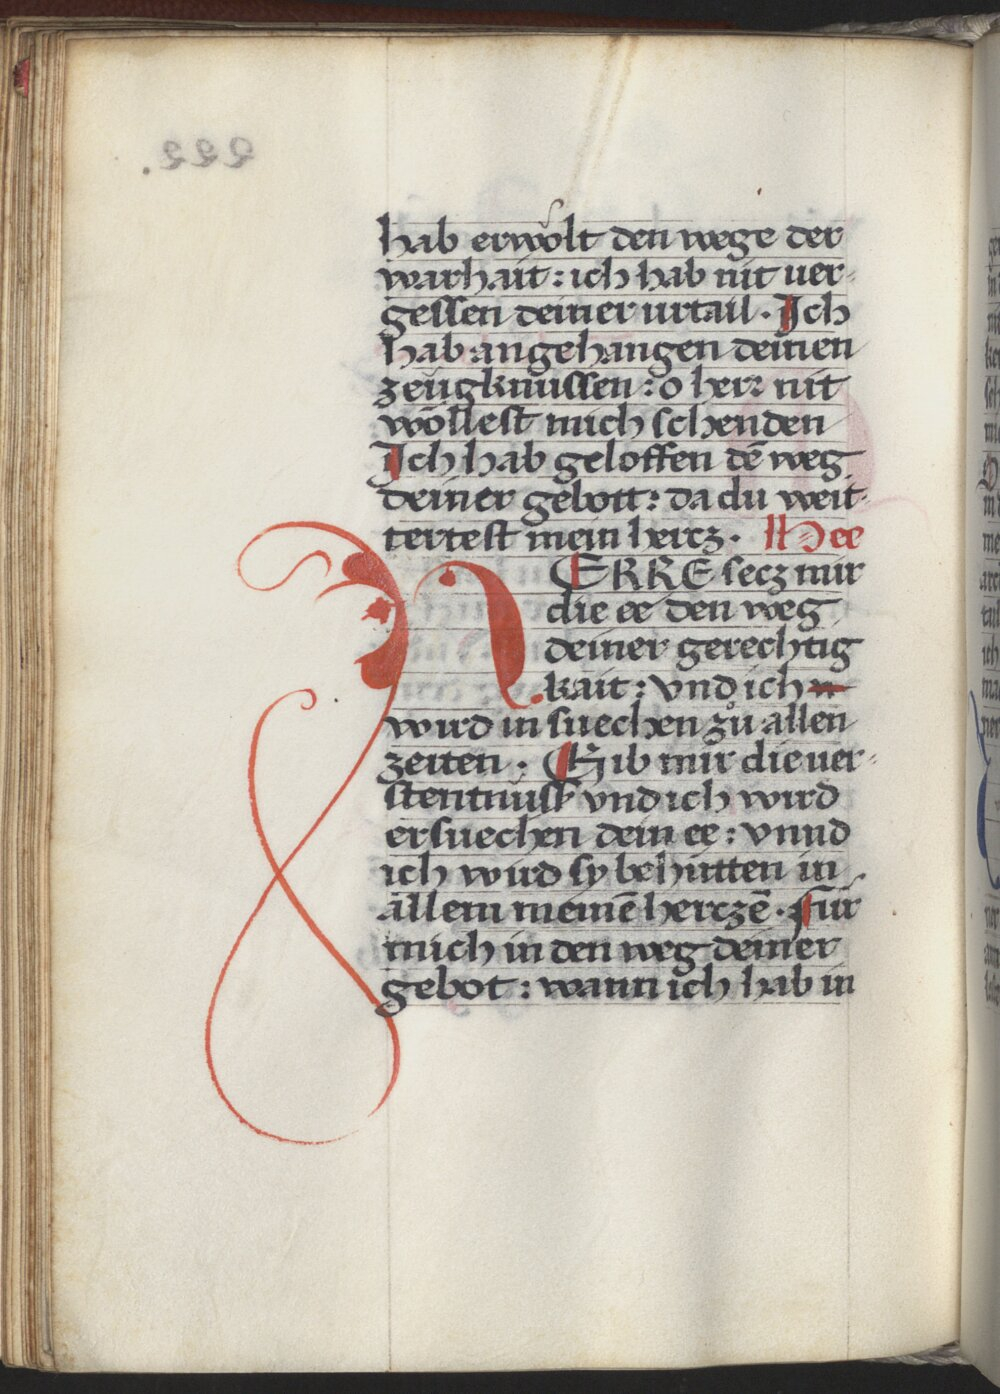 hab erwölt den wege der
warhait: ich hab nit uer-
gessen deiner urtail. Ich
hab angehangen deinen
zeügknüssen: o herr nit
wöllest mich schenden
Ich hab geloffen dē weg
deiner gebott: da du weit
tertest mein hercz. Hee
HERRE secz mir
die ee den weg
deiner gerechtig
kait: vnd ich
wird in suechen zů allen
zeiten. Gib mir die uer-
stentnüsß vnd ich wird
ersuechen dein ee: vnnd
ich wird sy behütten in
allem meinē herczē. Für
mich in den weg deiner
gebot: wann ich hab in